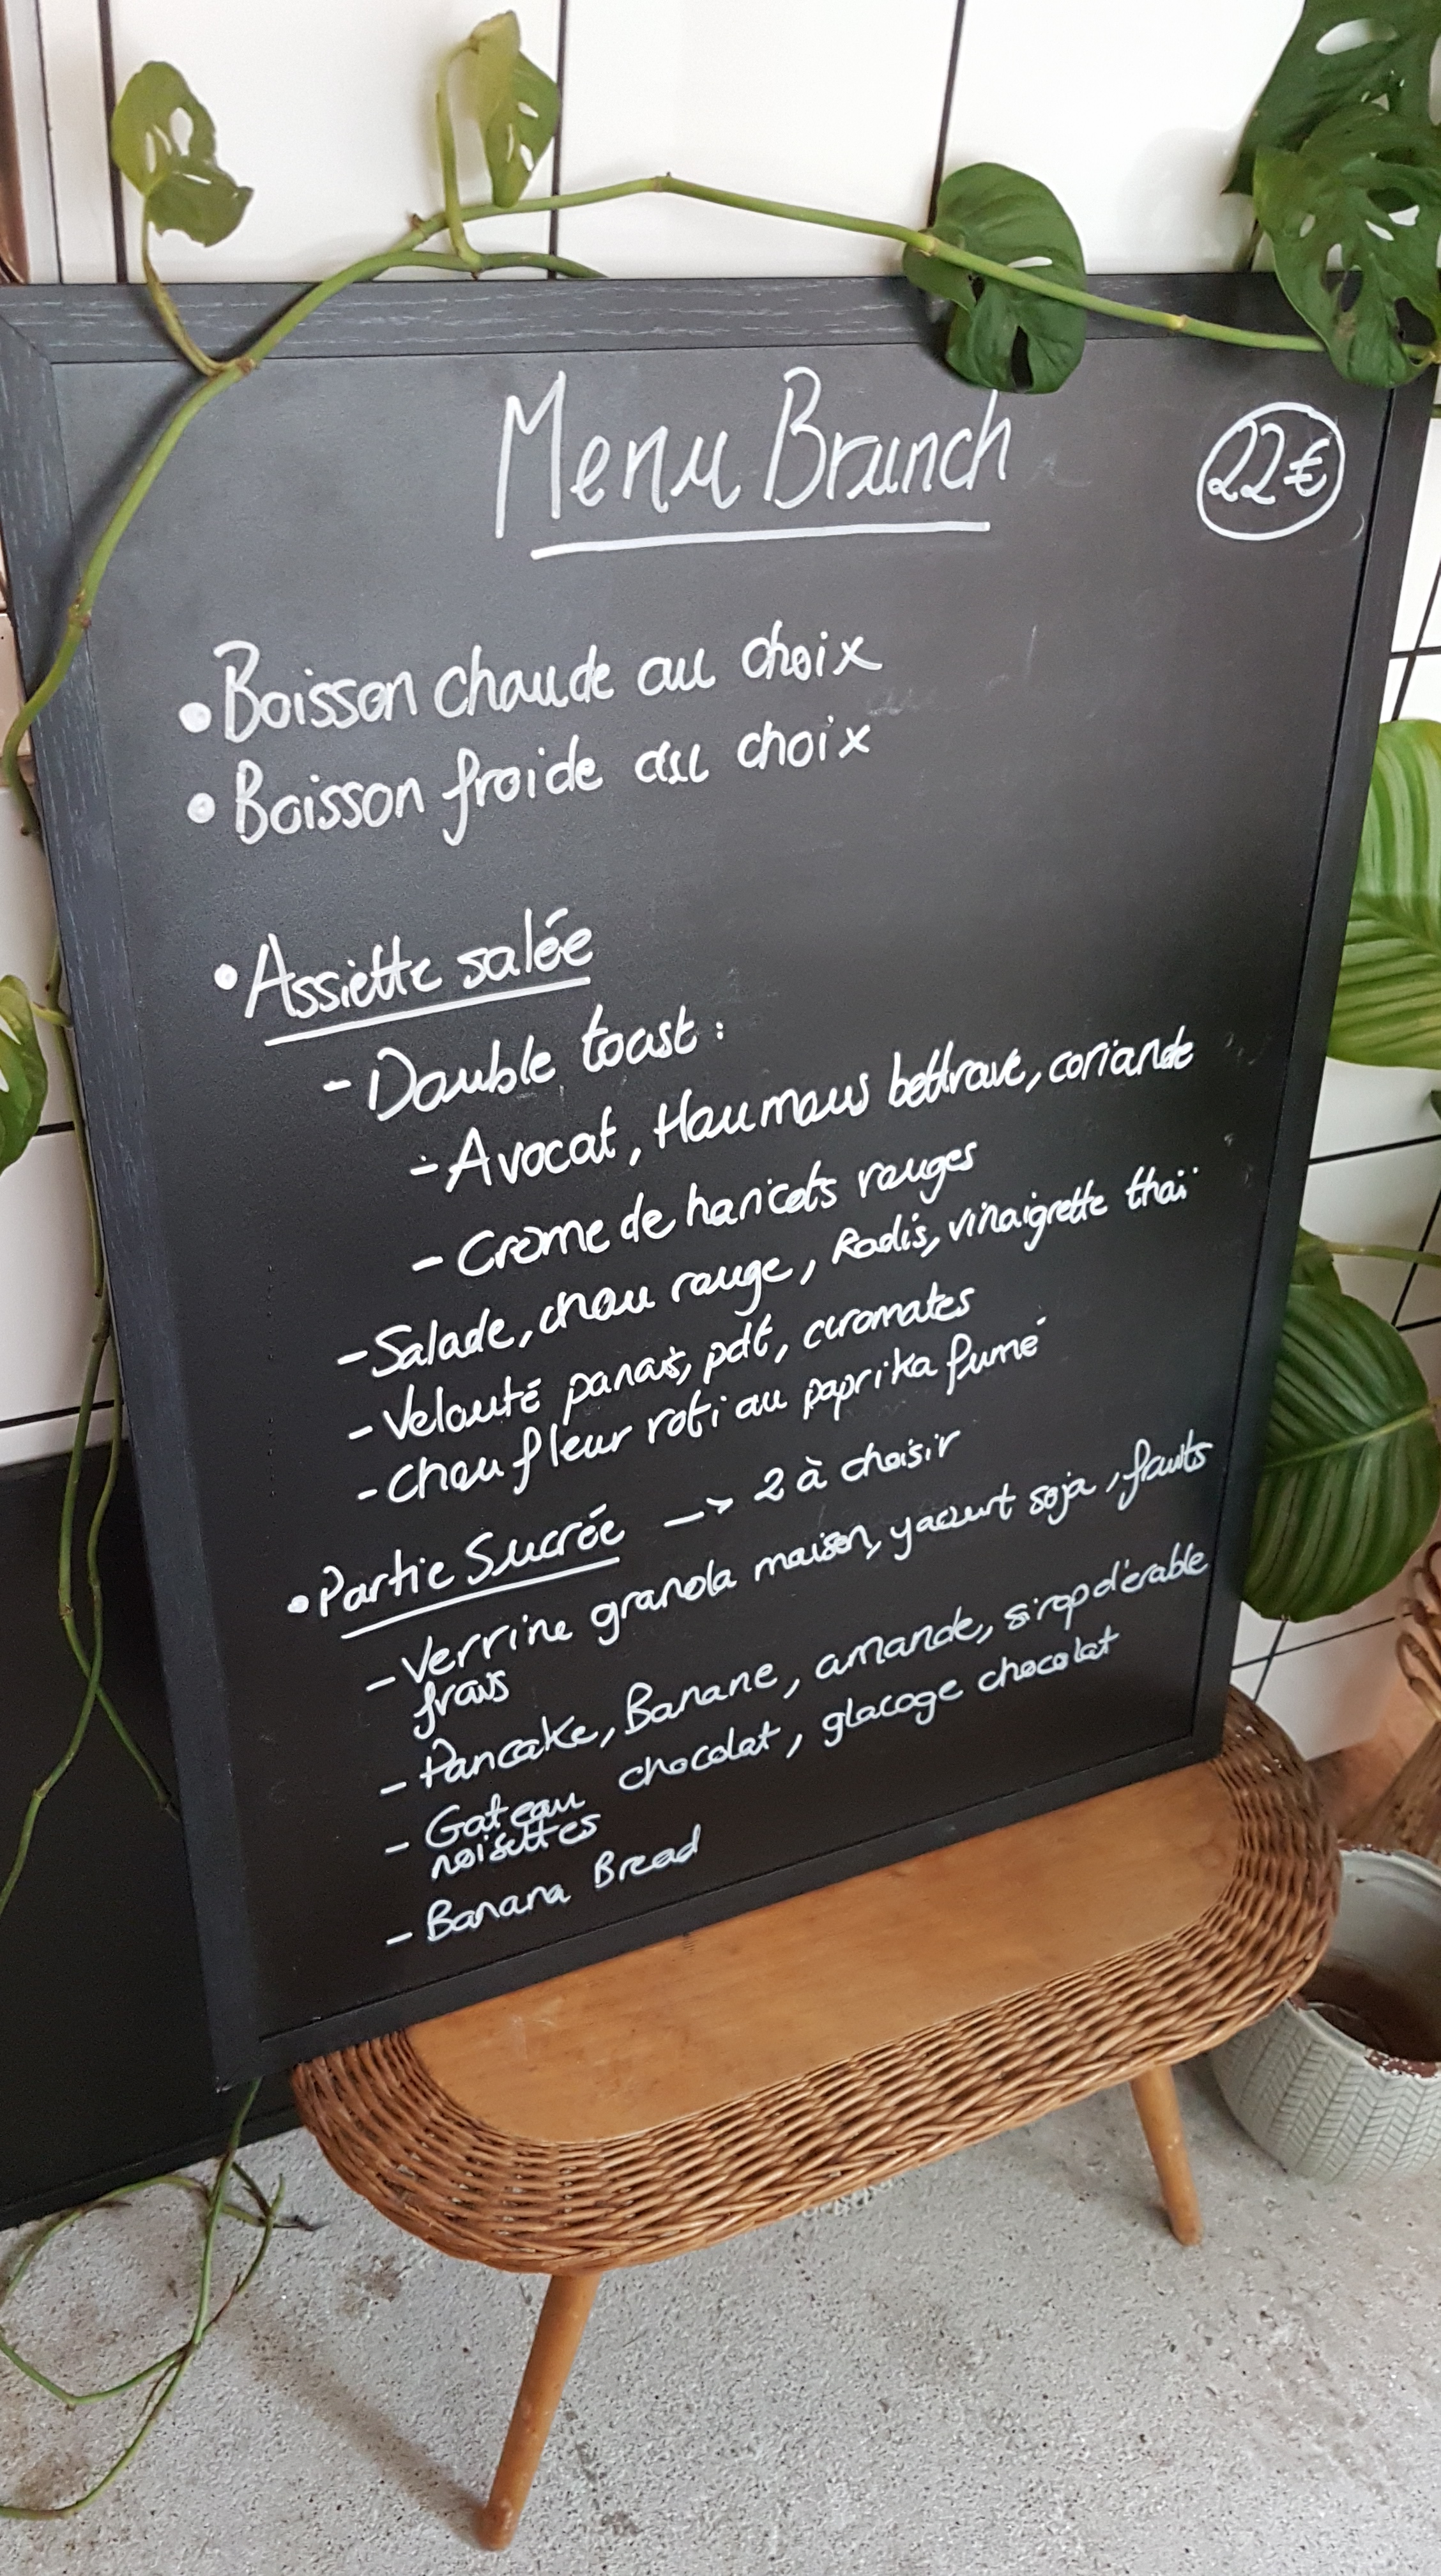 Menu Brunch
22€
• Boisson chaude au choix
• Boisson froide au choix
• Assiette salée
- Double toast :
- Avocat, Houmous bettrave, coriande
- Crème de haricots rouges
- Salade, chou rouge, Radis, vinaigrette thaï
- Velouté panais, pdt, aromates
- Chou fleur roti au paprika fumé
• Partie Sucrée -> 2 à choisir
- Verrine granola maison, yaourt soja, fruits
frais
- Pancake, Banane, amande, sirop d'érable
- Gateau chocolat, glacage chocolat
noisettes
- Banana Bread